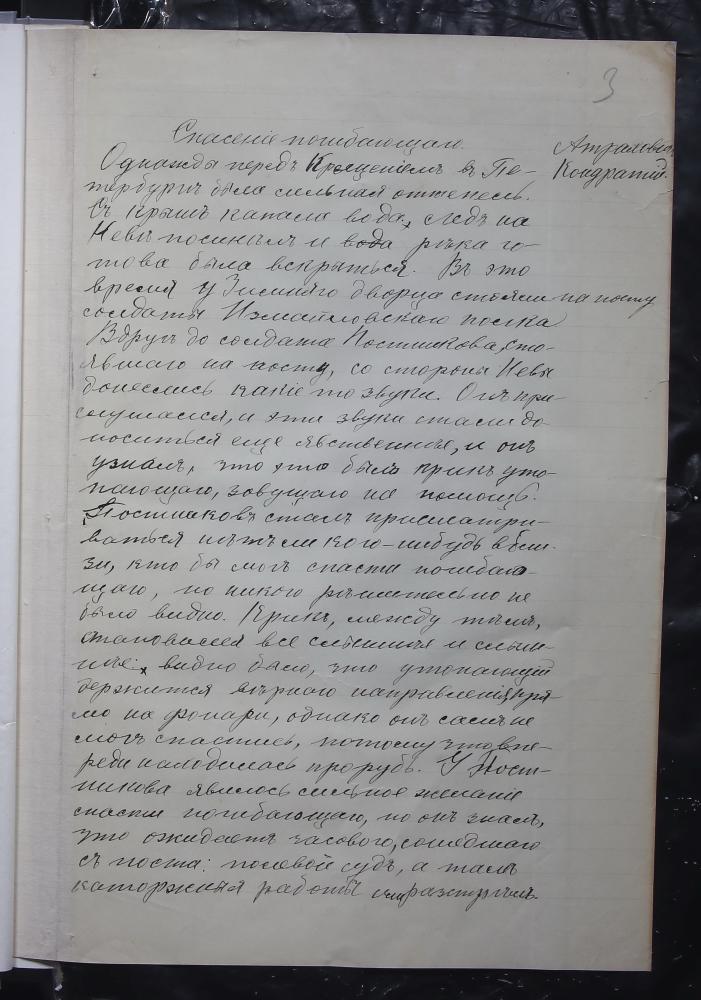 3
Спасеніе погибающаго.
Кондратій.
Однажды передъ Крещеніемъ въ Пе-
тербургѣ была сильная оттепель.
Съ крышъ капала вода, ледъ на
Невѣ посинѣлъ и вода рѣка го-
това была вскрыться. Въ это
время у Зимняго дворца стояли на посту
солдаты Измайловскаго полка
Вдругъ до солдата Постникова, сто-
явшаго на посту, со стороны Невы
донеслись какіе то звуки. Онъ при-
слушался, и эти звуки стали до-
носиться еще явственнѣе, и онъ
узналъ, что это былъ крикъ уто-
пающаго, зовущаго на помощь.
Постниковъ сталъ присматри-
ваться нѣтъ ли кого-нибудь вбли-
зи, кто бы могъ спасти погибаю-
щаго, но никого рѣшительно не
было видно. Крикъ, между тѣмъ,
становился все слышнѣе и слыш-
нѣе; видно было, что утопающій
держится вѣрнаго направленія, пря-
мо на фонари, однако онъ самъ не
могъ спастись, потому что впе-
реди находилась прорубь. У Пост-
никова явилось сильное желаніе
спасти погибающаго, но онъ зналъ,
что ожидаетъ часового, сошедшаго
съ поста: полевой судъ, а тамъ
каторжныя работы или разстрѣлъ.